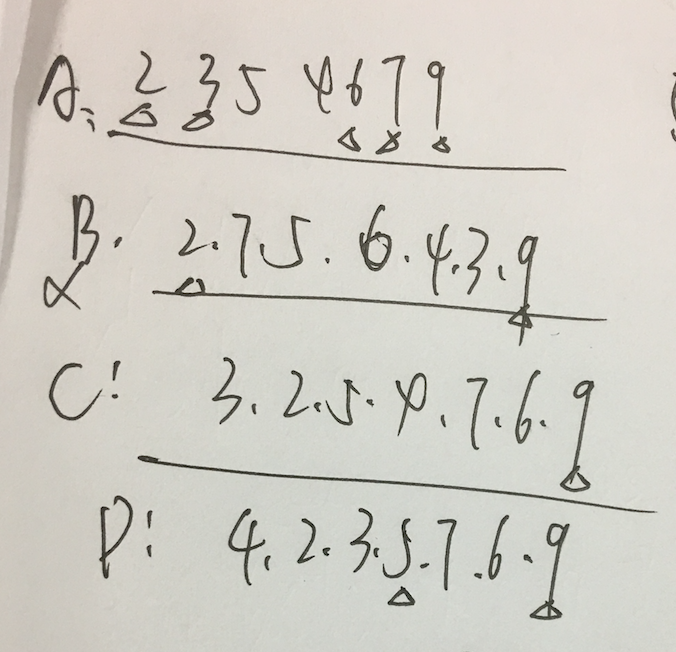 A: 2 3 5 4 6 7 9
B. 2.7 5. 6.4.3.9
C! 3.2.5.4.7.6.9
D! 4.2.3.5.7.6.9